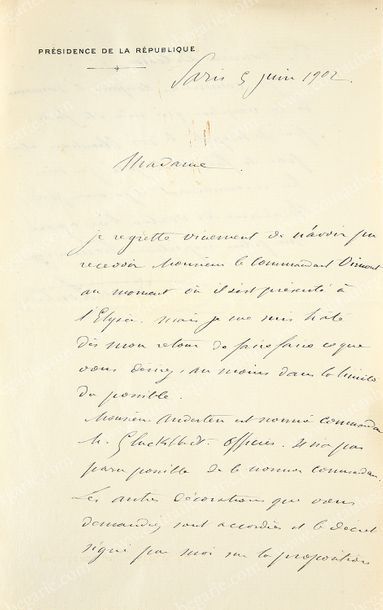 PRÉSIDENCE DE LA RÉPUBLIQUE
Paris 5 juin 1902.
Madame.
je regrette vivement de n'avoir pu
recevoir Monsieur le Commandant
au moment où il s'est présenté à
l'Elysée. mais je me suis hâté
dès mon retour de faire faire ce que
vous désirez, au moins dans la limite
du possible.
Monsieur est nommé commandeur
M. officier. Il n'a pas
paru possible de le nommer commandeur.
Les autres décorations que vous
demandez sont accordées et le décret
signé par moi sur la proposition